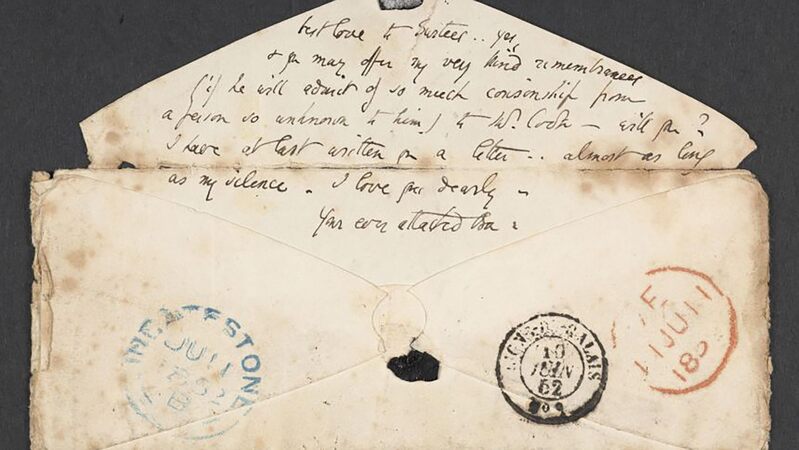 best love to Surtees .. yes,
& you may offer my very kind remembrances
(if he will admit of so much cousinship from
a person so unknown to him) to Mr. Cook — will you?
I have at last written you a letter .. almost as long
as my silence. I love you dearly –
Your ever attached Ba –
JU 11
1852
10
JUIN
52
11 JU 11
185